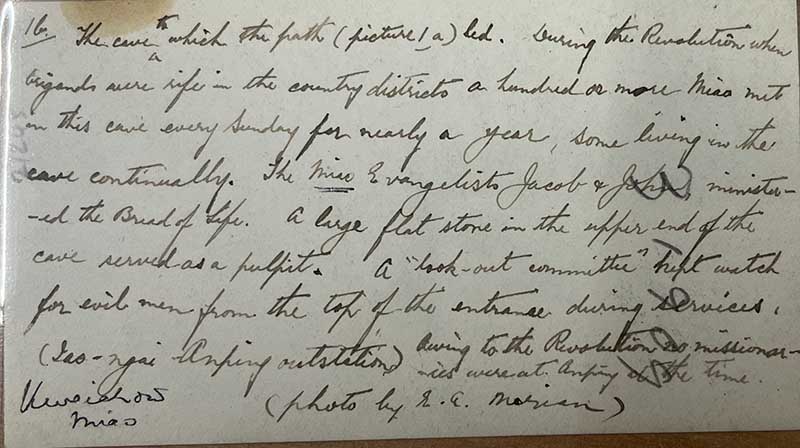 1b. The cave to which the path (picture 1 a) led. During the Revolution when
brigands were rife in the country districts a hundred or more Miao met
in this cave every Sunday for nearly a year, some living in the
cave continually. The Miao Evangelists Jacob & John, minister-
-ed the Bread of Life. A large flat stone in the upper end of the
cave served as a pulpit. A "look-out committee" kept watch
for evil men from the top of the entrance during services.
(Lao-ngai Anping outstation) Owing to the Revolution no missionar-
-ies were at Anping at the time.
Kweichow
Miao
(photo by E. A.